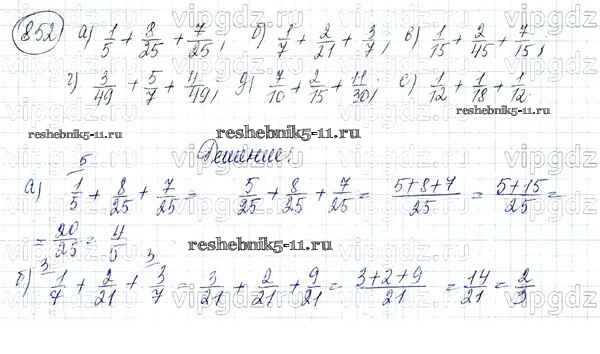 852) а) 1/5 + 8/25 + 7/25, б) 1/7 + 2/21 + 3/7, в) 1/15 + 2/45 + 7/15,
г) 3/49 + 5/7 + 4/49, д) 7/10 + 2/15 + 11/30, е) 1/12 + 1/18 + 1/12
reshebnik5-11.ru
reshebnik5-11.ru
reshebnik5-11.ru
Решение:
а) 1/5 (5 + 8/25 + 7/25 = 5/25 + 8/25 + 7/25 = (5+8+7)/25 = (5+15)/25 =
= 20/25 = 4/5
reshebnik5-11.ru
б) 1/7 (3 + 2/21 + 3/7 (3 = 3/21 + 2/21 + 9/21 = (3+2+9)/21 = 14/21 = 2/3
vipgdz